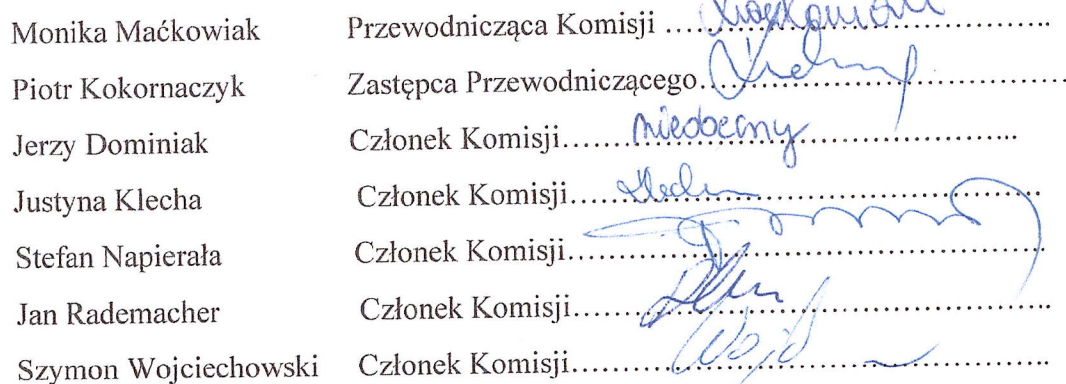 Monika Maćkowiak Przewodnicząca Komisji ...........................
Piotr Kokornaczyk Zastępca Przewodniczącego...........................
Jerzy Dominiak Członek Komisji......nieobecny......................
Justyna Klecha Członek Komisji...........................
Stefan Napierała Członek Komisji...........................
Jan Rademacher Członek Komisji...........................
Szymon Wojciechowski Członek Komisji...........................